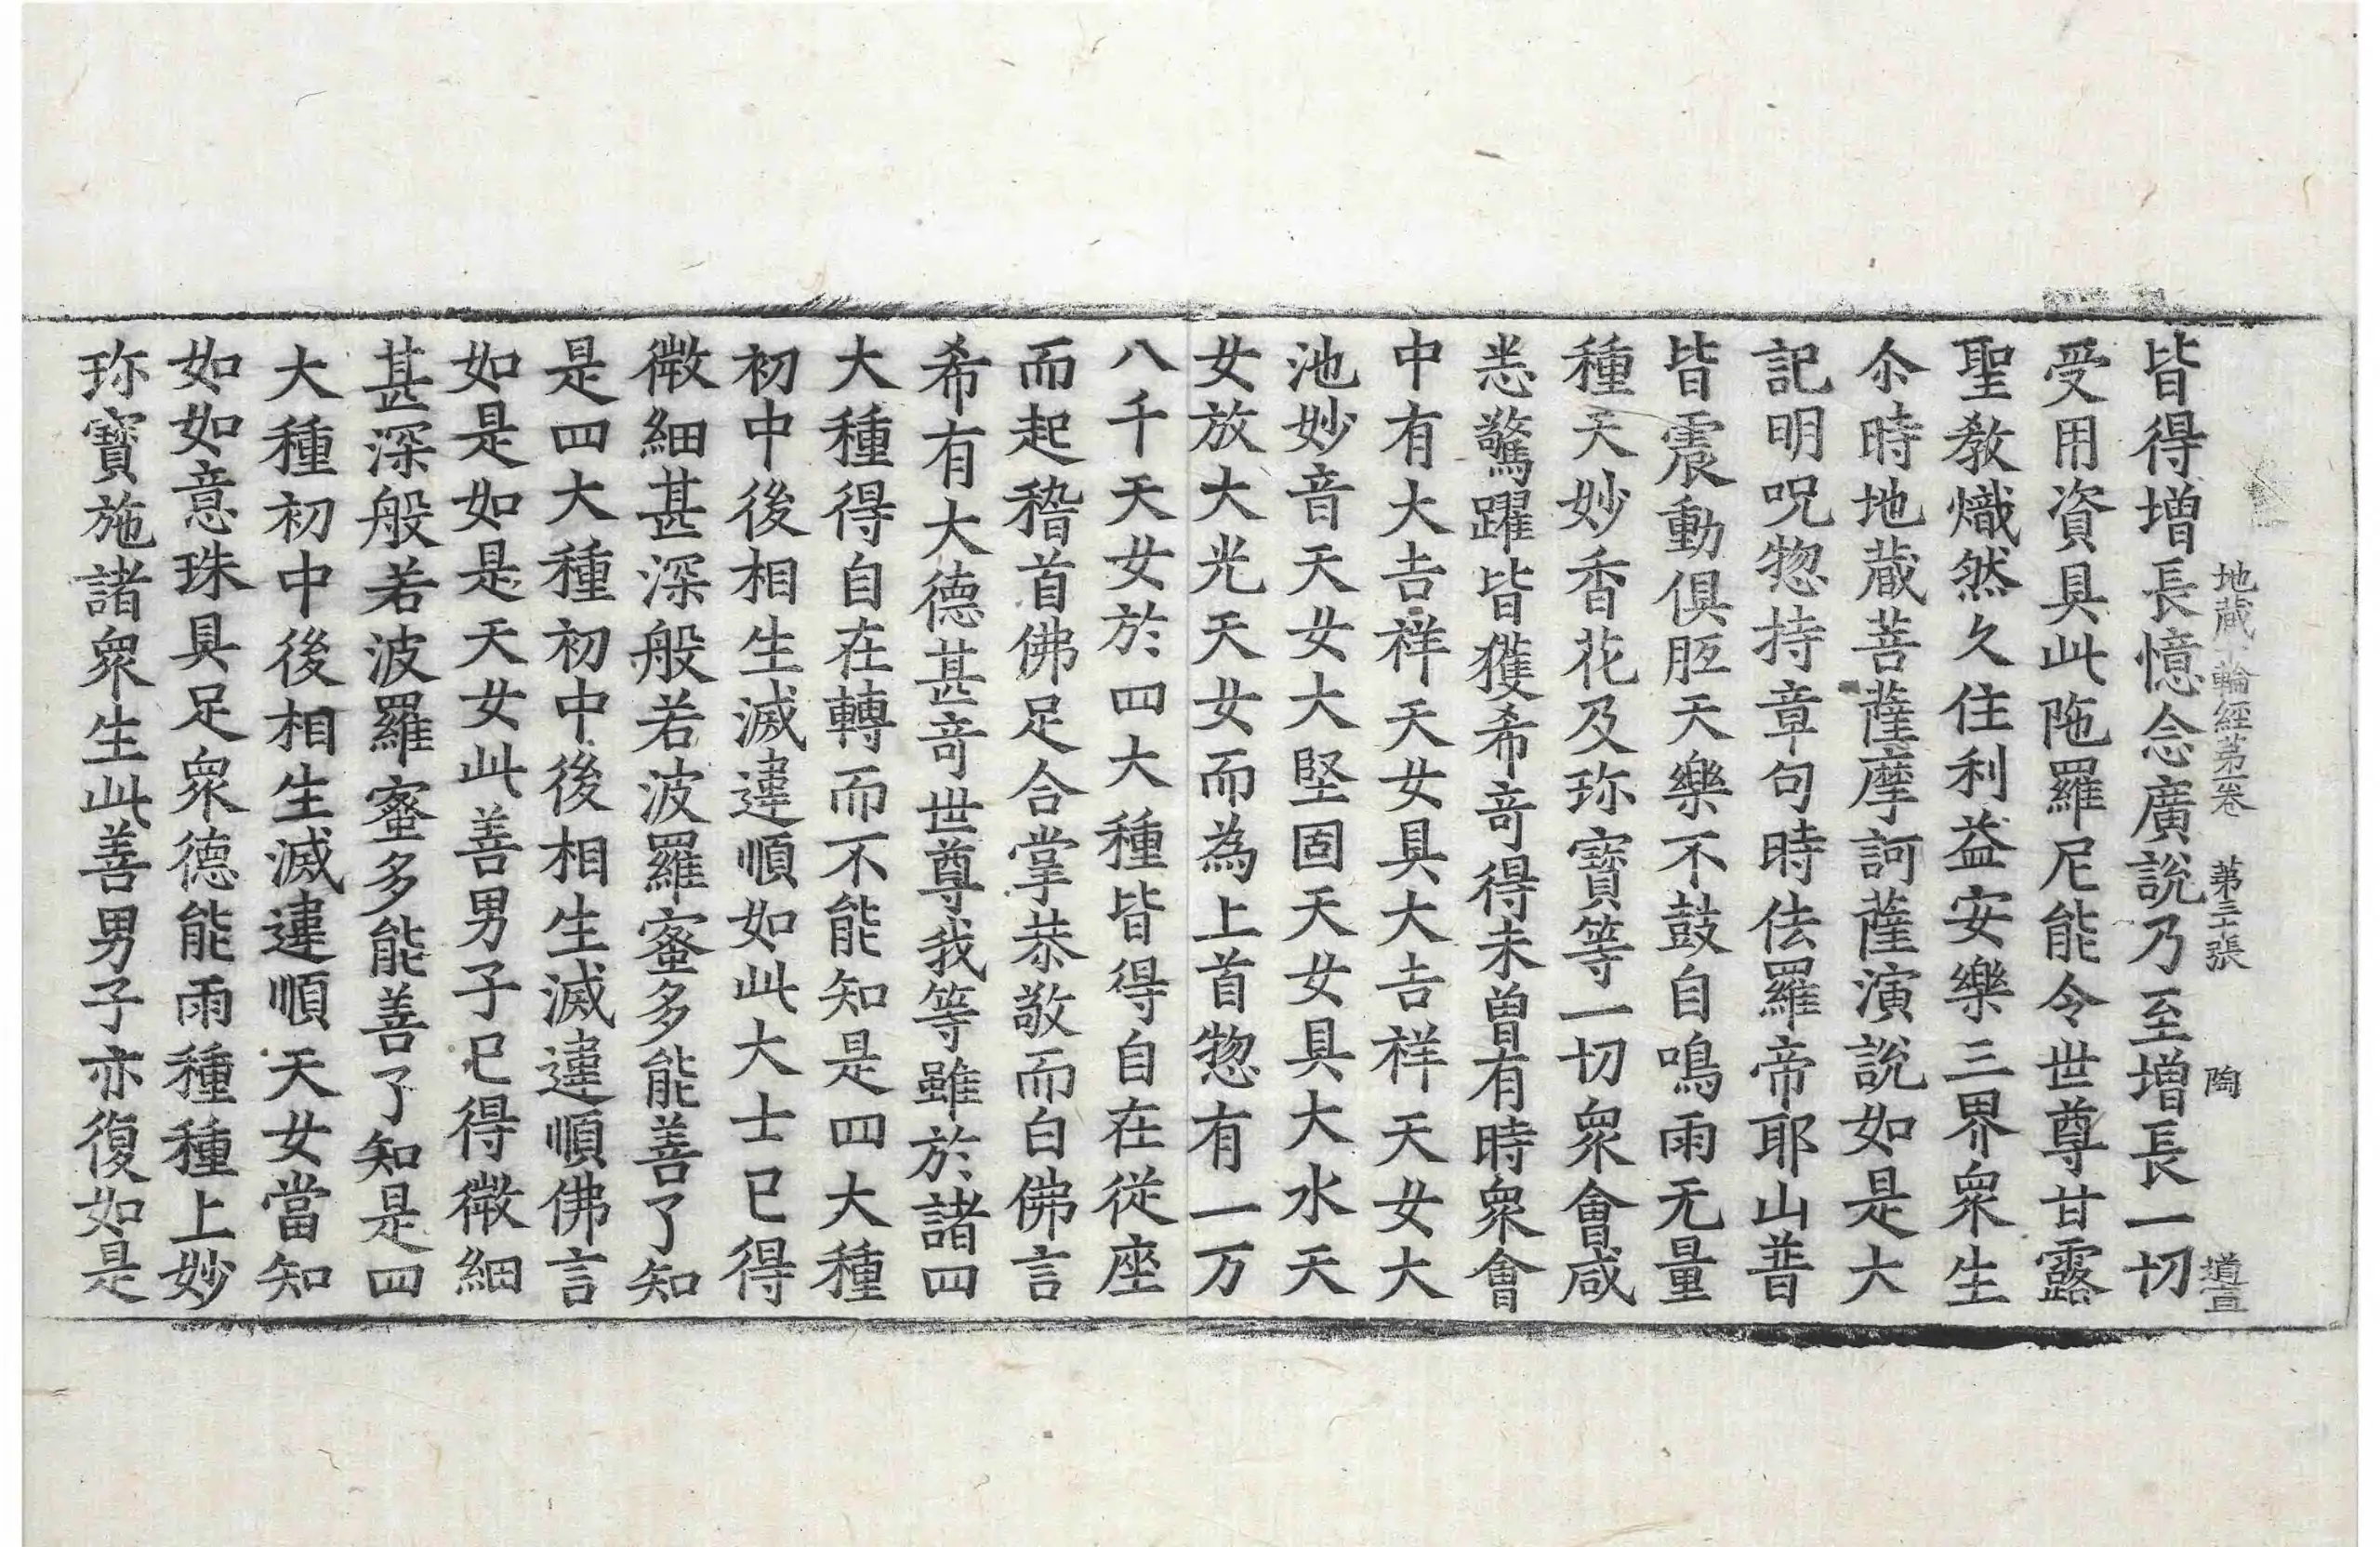 地藏十輪經第一卷 第二十張 陶 道宣
皆得增長憶念廣說乃至增長一切
受用資具此陁羅尼能令世尊甘露
聖教熾然久住利益安樂三界衆生
尒時地蔵菩薩摩訶薩演說如是大
記明呪揔持章句時佉羅帝耶山普
皆震動俱胝天樂不鼓自鳴雨无量
種天妙香花及珎寶等一切衆會咸
悉驚躍皆獲希奇得未曽有時衆會
中有大吉祥天女具大吉祥天女大
池妙音天女大堅固天女具大水天
女放大光天女而為上首揔有一万
八千天女於四大種皆得自在從座
而起稽首佛足合掌恭敬而白佛言
希有大德甚奇世尊我等雖於諸四
大種得自在轉而不能知是四大種
初中後相生滅違順如此大士已得
微細甚深般若波羅蜜多能善了知
是四大種初中後相生滅違順佛言
如是如是天女此善男子已得微細
甚深般若波羅蜜多能善了知是四
大種初中後相生滅違順天女當知
如如意珠具足衆德能雨種種上妙
珎寶施諸衆生此善男子亦復如是